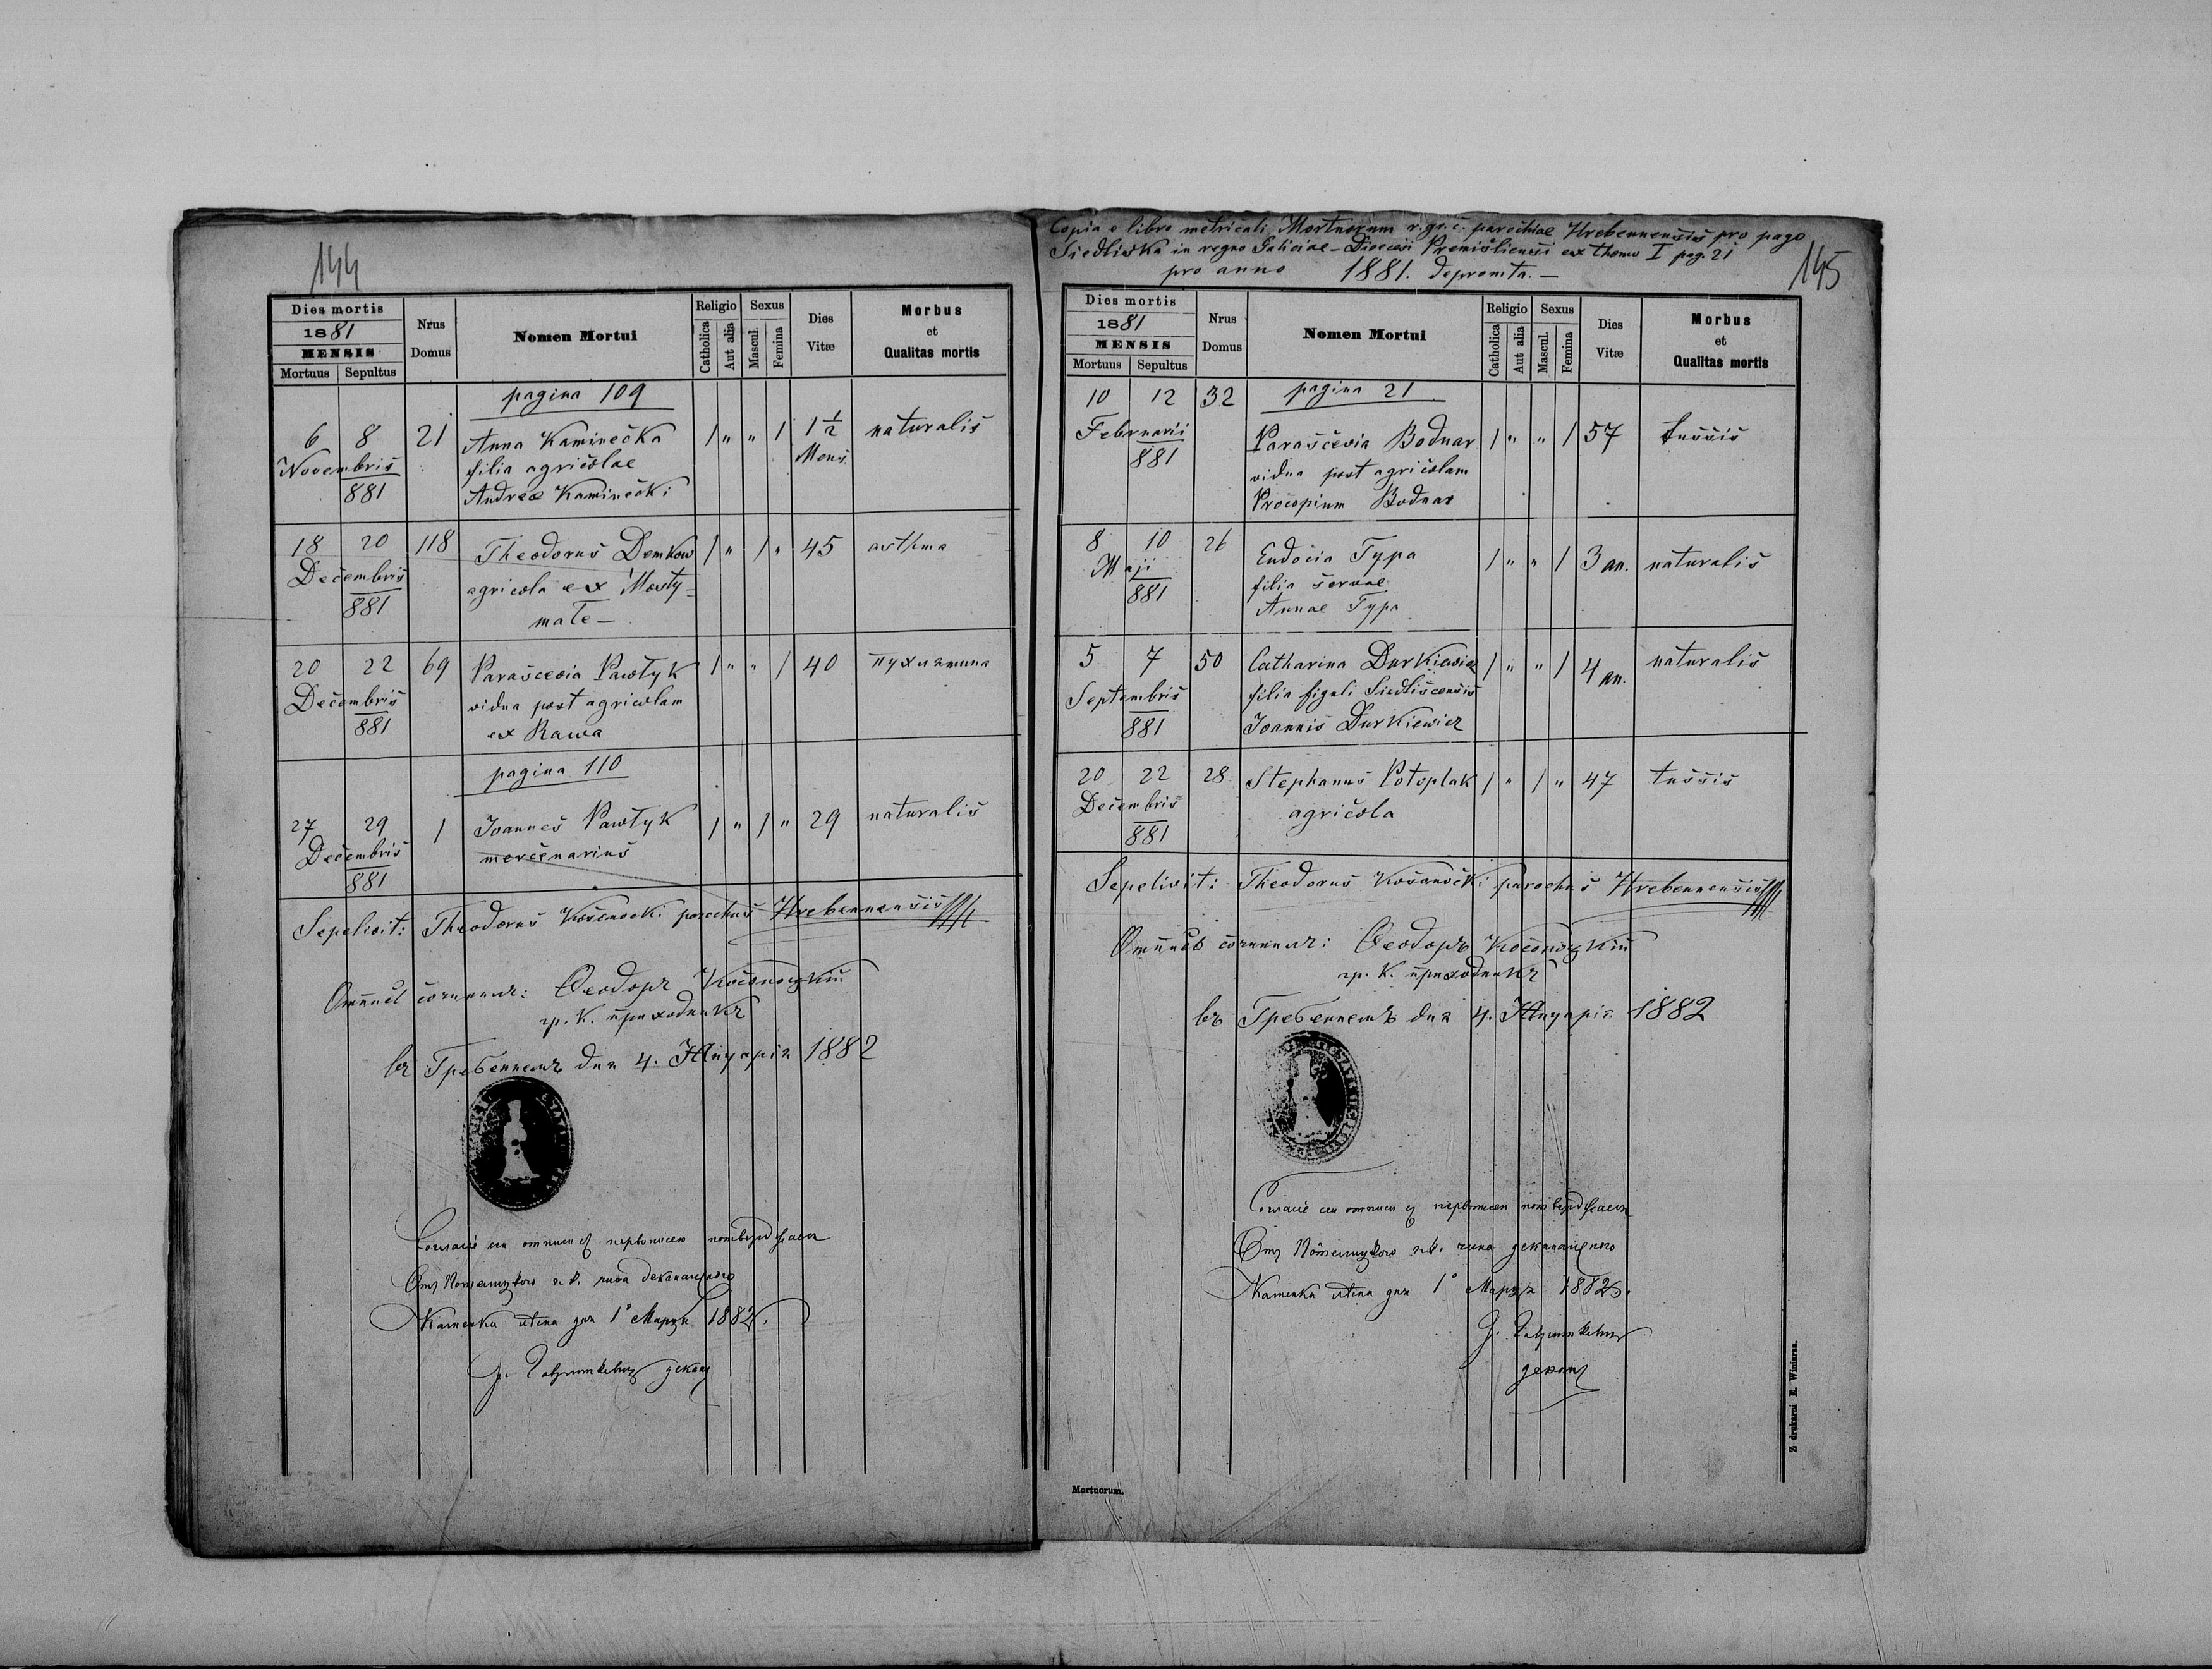 144
Dies mortis
1881
MENSIS
Mortuus Sepultus
Nrus Domus
Nomen Mortui
Religio
Catholica
Aut alia
Sexus
Mascul.
Femina
Dies Vitæ
Morbus et Qualitas mortis
pagina 109
6 8 21 Anna Kaminecka 1 " " 1 1½ naturalis
Novembris filia agricolae Mens.
881 Andreæ Kaminecki
18 20 118 Theodorus Demkow 1 " 1 " 45 asthma
Decembris agricola ex Mosty-
881 małe —
20 22 69 Parascevia Pawłyk 1 " " 1 40
Decembris vidua post agricolam
881 ex Rawa
pagina 110
27 29 1 Joannes Pawłyk 1 " 1 " 29 naturalis
Decembris mercenarius
881
Sepelivit: Theodorus Kosonocki parochus Hrebennensis
Отписъ сочинилъ: Ѳеодоръ Косоноцкій
гр. к. приходникъ
въ Гребенномъ дня 4. Януарія 1882
Согласіе сеи отписи съ первописею потверджаеся
Отъ Потелицкого деканального
Каменка дня 1° Марця 1882.
деканъ
Copia e libro metricali Mortuorum r. gr. c. parochiae Hrebennensis pro pago
Siedliska in regno Galiciae – Dioecesi Premisliensi ex thomo I pag. 21
pro anno 1881. depromta. —
145
Dies mortis
1881
MENSIS
Mortuus Sepultus
Nrus Domus
Nomen Mortui
Religio
Catholica
Aut alia
Sexus
Mascul.
Femina
Dies Vitæ
Morbus et Qualitas mortis
10 12 32 pagina 21
Februarii Parascevia Bodnar 1 " " 1 57 tussis
881 vidua post agricolam
Procopium Bodnar
8 10 26 Eudocia Typa 1 " " 1 3 an. naturalis
Maji filia servae
881 Annae Typa
5 7 50 Catharina Durkiewicz 1 " " 1 4 an. naturalis
Septembris filia figuli Siedliscensis
881 Joannis Durkiewicz
20 22 28 Stephanus Potoplak 1 " 1 " 47 tussis
Decembris agricola
881
Sepelivit: Theodorus Kosonocki parochus Hrebennensis
Отписъ сочинилъ: Ѳеодоръ Косоноцкій
гр. к. приходникъ
въ Гребенномъ дня 4. Януарія 1882
Согласіе сеи отписи съ первописеи потверджаеся
Отъ Потелицкого деканального
Каменка дня 1° Марця 1882.
деканъ
Mortuorum.
Z drukarni E. Winiarza.